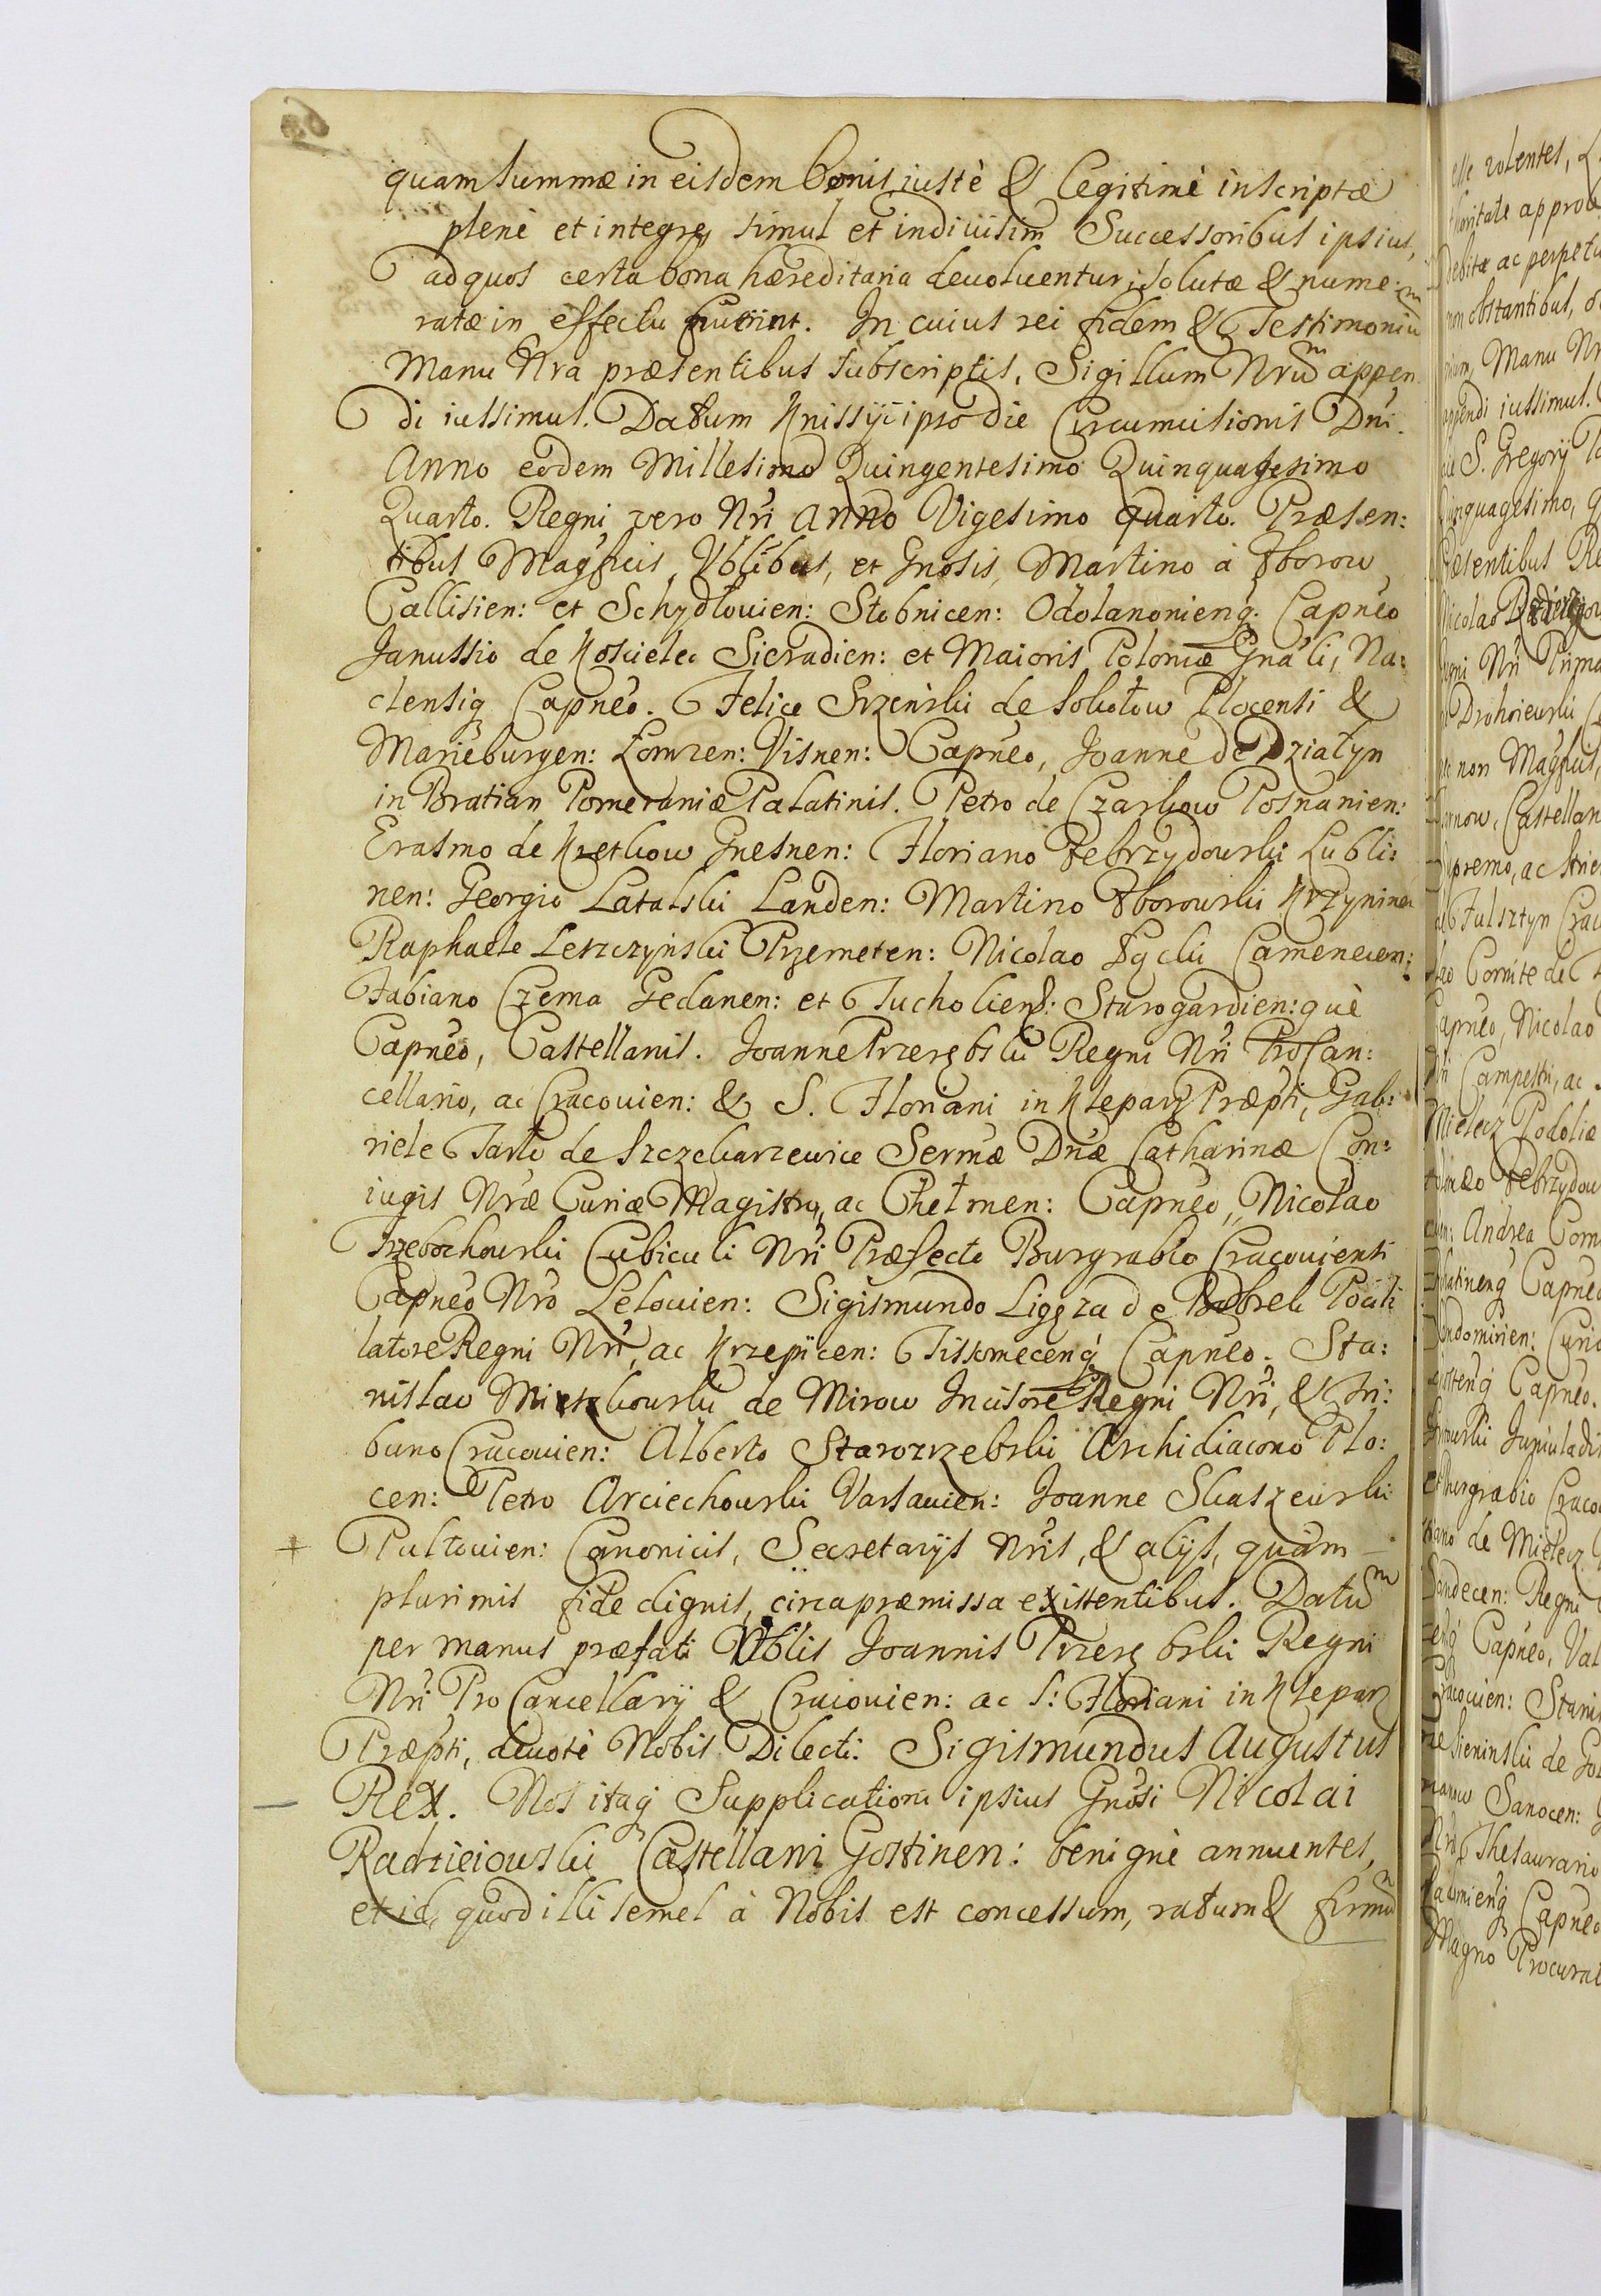 quam summæ in eisdem bonis iustè & legitimè inscriptæ
plenè et integrè, simul et indiuisim Successoribus ipsius,
ad quos certa bona hæreditaria deuoluentur, solutæ & nume:
ratæ in effectu fuerint. In cuius rei fidem & Testimoniũ
Manu Nra præsentibus subscriptis, Sigillum Nrũm appen
di iussimus. Datum Knissÿi ipso die Circumcisionis Dni.
Anno eodem Millesimo Quingentesimo Quinquagesimo
Quarto. Regni vero Nri Anno Vigesimo quarto. Præsen:
tibus Magficis, Vblibus, et Gnosis, Martino à Zborow
Callisien: et Schydlouien: Stobnicen: Odolanonienq: Capneo
Janussio de Koscielec Sieradien: et Maioris Poloniæ Gnali, Na:
clensiq Capneo. Felice Srzenski de Sokołow Plocensi &
Marieburgen: Łomzen: Visnen: Capneo, Joanne de Działyn
in Bratian Pomeraniæ Palatinis. Petro de Czarkow Posnanien:
Erasmo de Kretkow Gnesnen: Floriano Zebrzydowski Lubli:
nen: Georgio Latalski Landen: Martino Zborowski Krzyninen
Raphaele Leszczynski Przemeten: Nicolao Lycki Camenecen:
Fabiano Czema Gedanen: et Tucholiens: Starogardien: què
Capneo, Castellanis. Joanne Przerębski Regni Nri ProCan:
cellario, ac Cracouien: & S. Floriani in Kleparz Præpti, Gab:
riele Tarło de Szczekarzewice Sermæ Dnæ Catharinæ Con:
iugis Nræ Curiæ Magistro, ac Chełmen: Capneo, Nicolao
Trzebochowski Cubiculi Nri Præfecto Burgrabio Cracouiensi
Capneo Nro Lelouien: Sigismundo Ligęza de Bobrek Pocil
latore Regni Nri, ac Krzepicen: Tissomecenq Capneo. Sta:
nislao Mietzkowski de Mirow Incisore Regni Nri, & Tri:
buno Cracouien: Alberto Starozrzebski Archidiacono Plo:
cen: Petro Arciechowski Varsauien: Joanne Skaszewski
Pultouien: Canonicis, Secretarÿs Nris, & alÿs, quàm
plurimis fide dignis, circa præmissa existentibus. Datũm
per manus præfati Vblis Joannis Przerębski Regni
Nri ProCancellarÿ & Cracouien: ac S: Floriani in Kleparz
Præpti, deuotè Nobis Dilecti. Sigismundus Augustus
Rex. Nos itaq Supplicationi ipsius Gnosi Nicolai
Radzieiowski Castellani Gostinen: benignè annuentes,
et id, quod illi semel à Nobis est concessum, ratum & firmũ